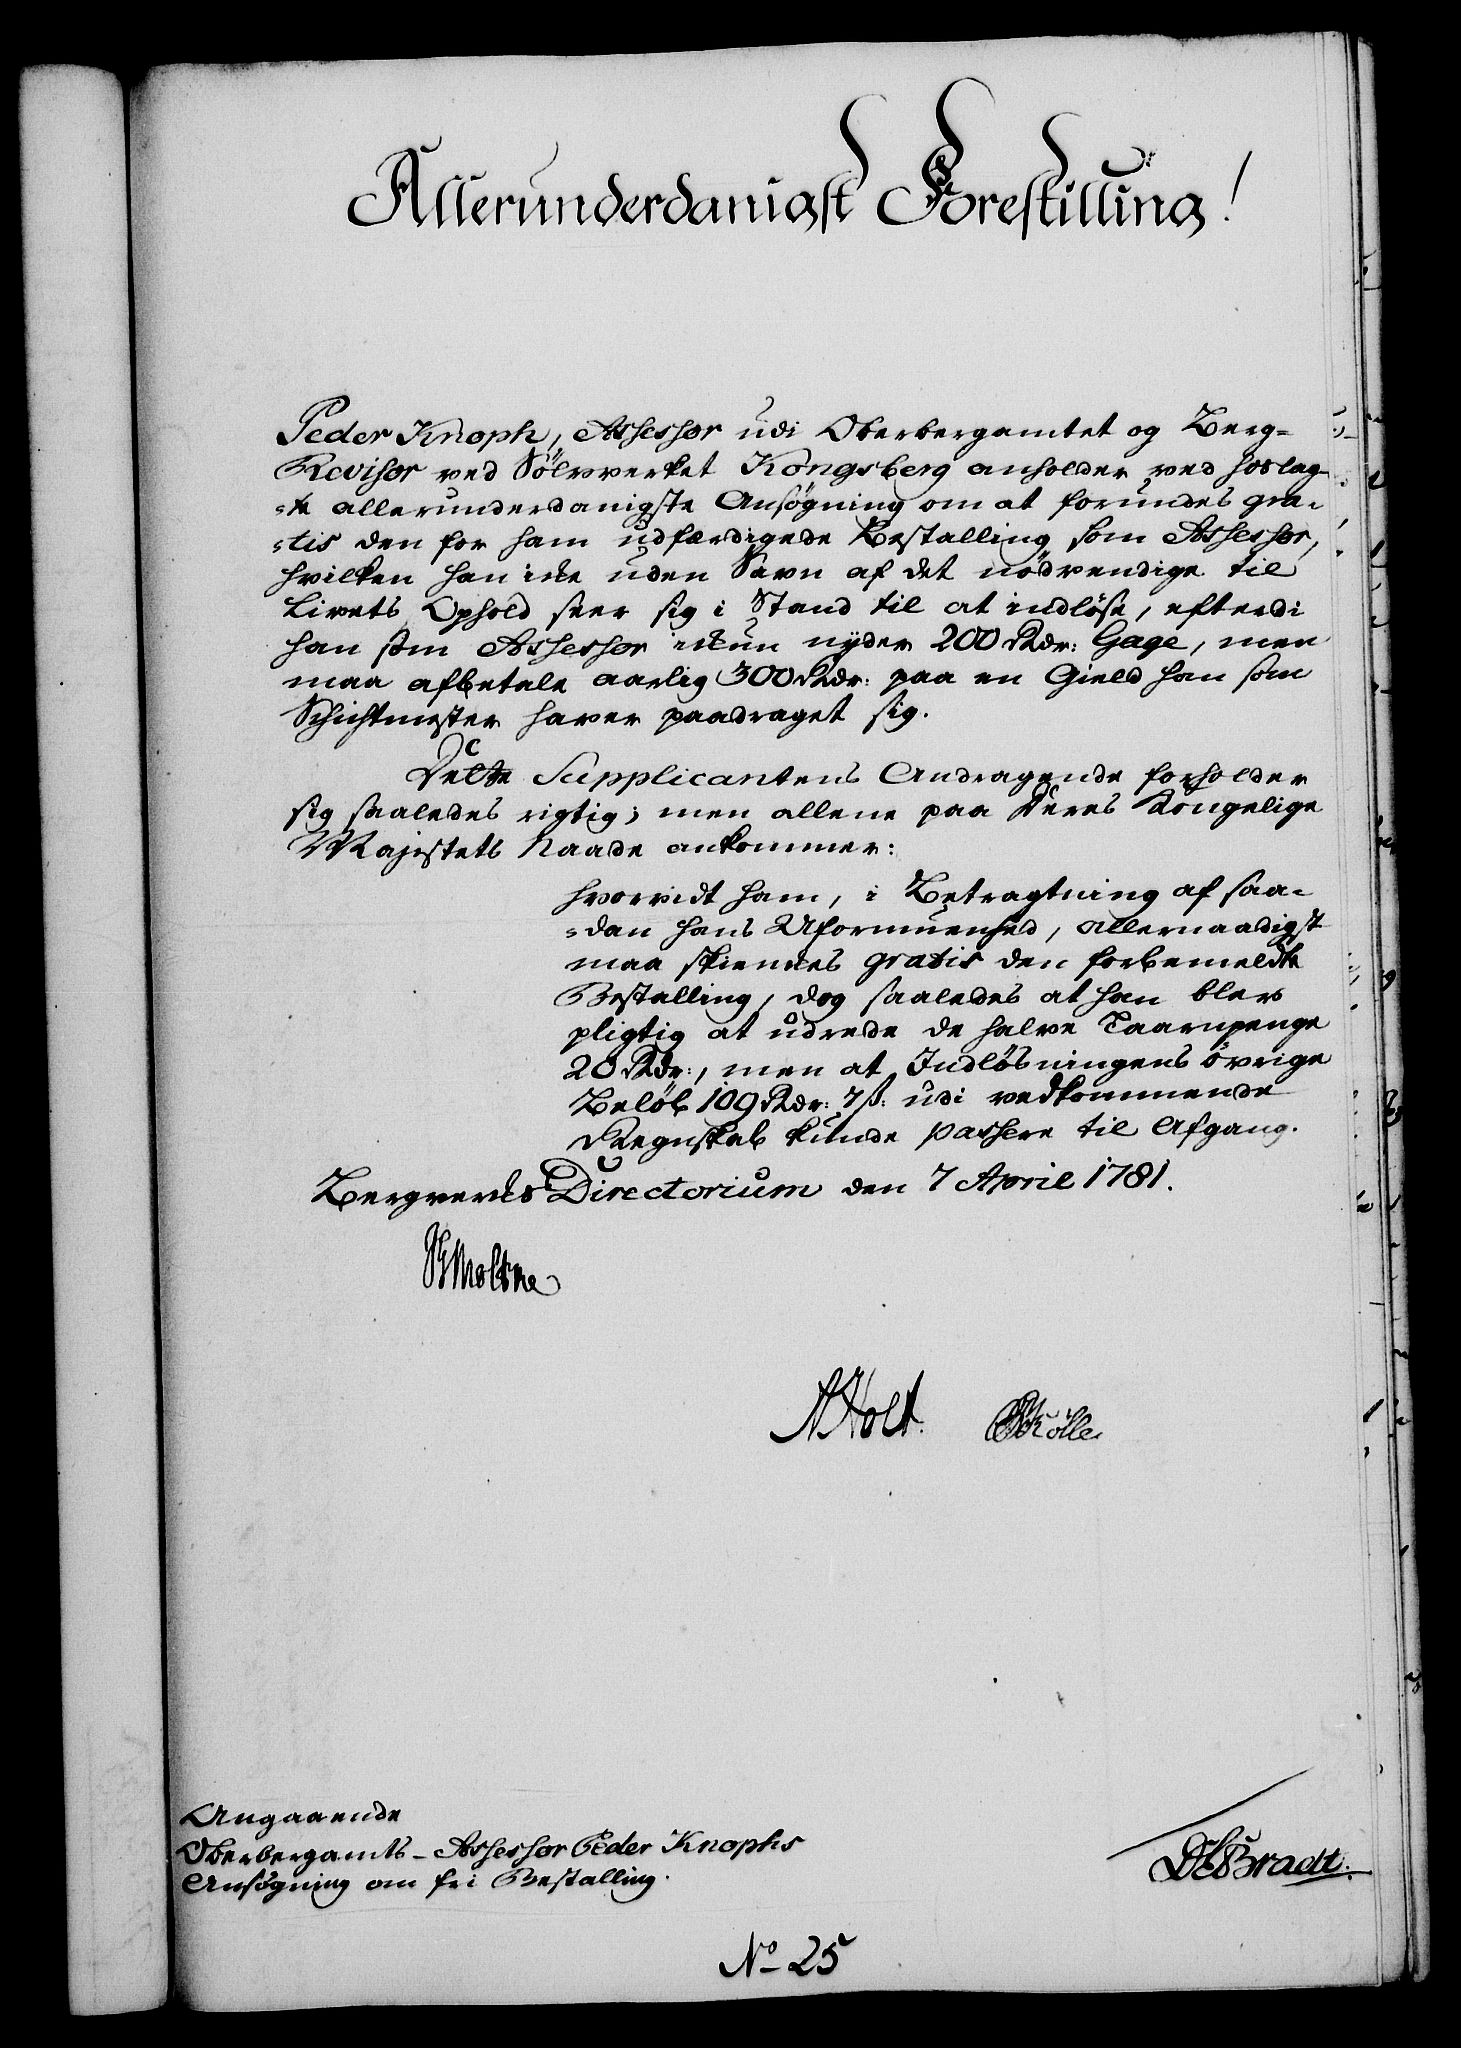 Allerunderdanigst Forestilling!
Peder Knoph, Assessor udi Oberbergamtet og Berg=
Revisor ved Sölvverket Kongsberg anholder ved hoslag=
=te allerunderdanigste Ansögning om at forundes gra=
=tis den for ham udfærdigede Bestalling som Assessor,
hvilken han ikke uden Savn af det nödvendige til
Livets Ophold seer sig i Stand til at indlöse, efterdi
han som Assessor ikkun nyder 200 Rdr: Gage, men
maa afbetale aarlig 300 Rdr: paa en Gield han som
Schichtmester haver paadraget sig.
Dette Supplicantens Andragende forholder
sig saaledes rigtig; men allene paa Deres Kongelige
Majestets Naade ankommer:
hvorvidt ham, i Betragtning af saa=
=dan hans Uformuenhed, allernaadigst
maa skienkes gratis den forbemeldte
Bestalling, dog saaledes at han blev
pligtig at udrede de halve Taarnpenge
20 Rdr:, men at Indlösningens övrige
Belöb 109 Rdr: 7 ß: udi vedkommende
Regnskab kunde passere til Afgang.
Bergverks Directorium den 7 April 1781.
Moltke
AHolt.
Angaaende
Oberbergamts-Assessor Peder Knophs
Ansögning om fri Bestalling.
Bradt.
No 25